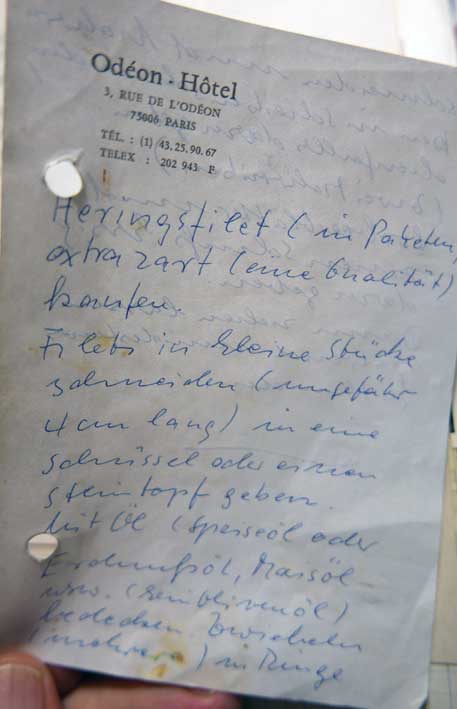 Odéon · Hôtel
3, RUE DE L'ODÉON
75006 PARIS
TÉL. : (1) 43.25.90.67
TELEX : 202 943 F
Heringsfilet (in Paketen,
extra zart (eine Qualität)
kaufen.
Filets in kleine Stücke
schneiden (ungefähr
4 cm lang) in eine
Schüssel oder einen
Steintopf geben.
Mit Öl (Speiseöl oder
Erdnußöl, Maisöl
usw. (kein Olivenöl)
bedecken. Zwiebeln
(mehrere) in Ringe